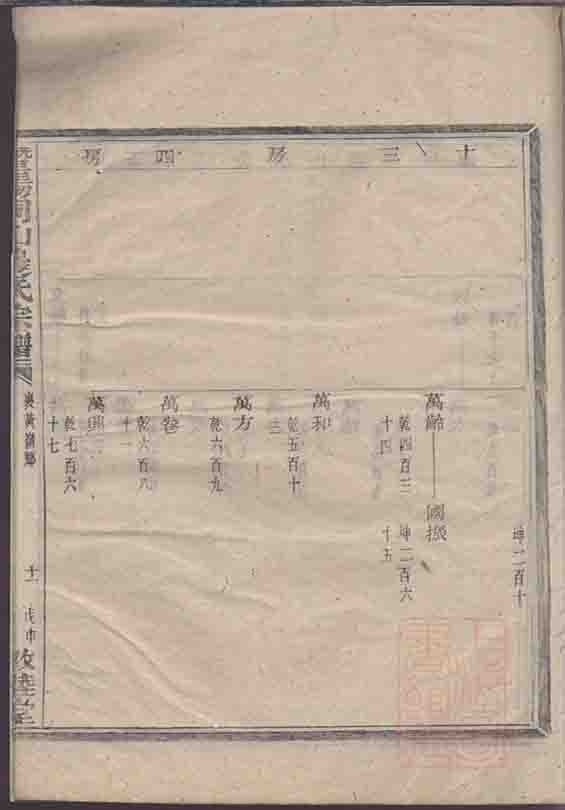 十三房四房
坤二百十
萬齡 國振
乾四百三十四
坤二百六十五
萬和
乾五百十三
萬方
乾六百九
萬卷
乾六百八十一
萬興
乾七百六十七
山 氏宗譜
十一
戊申
敦睦堂